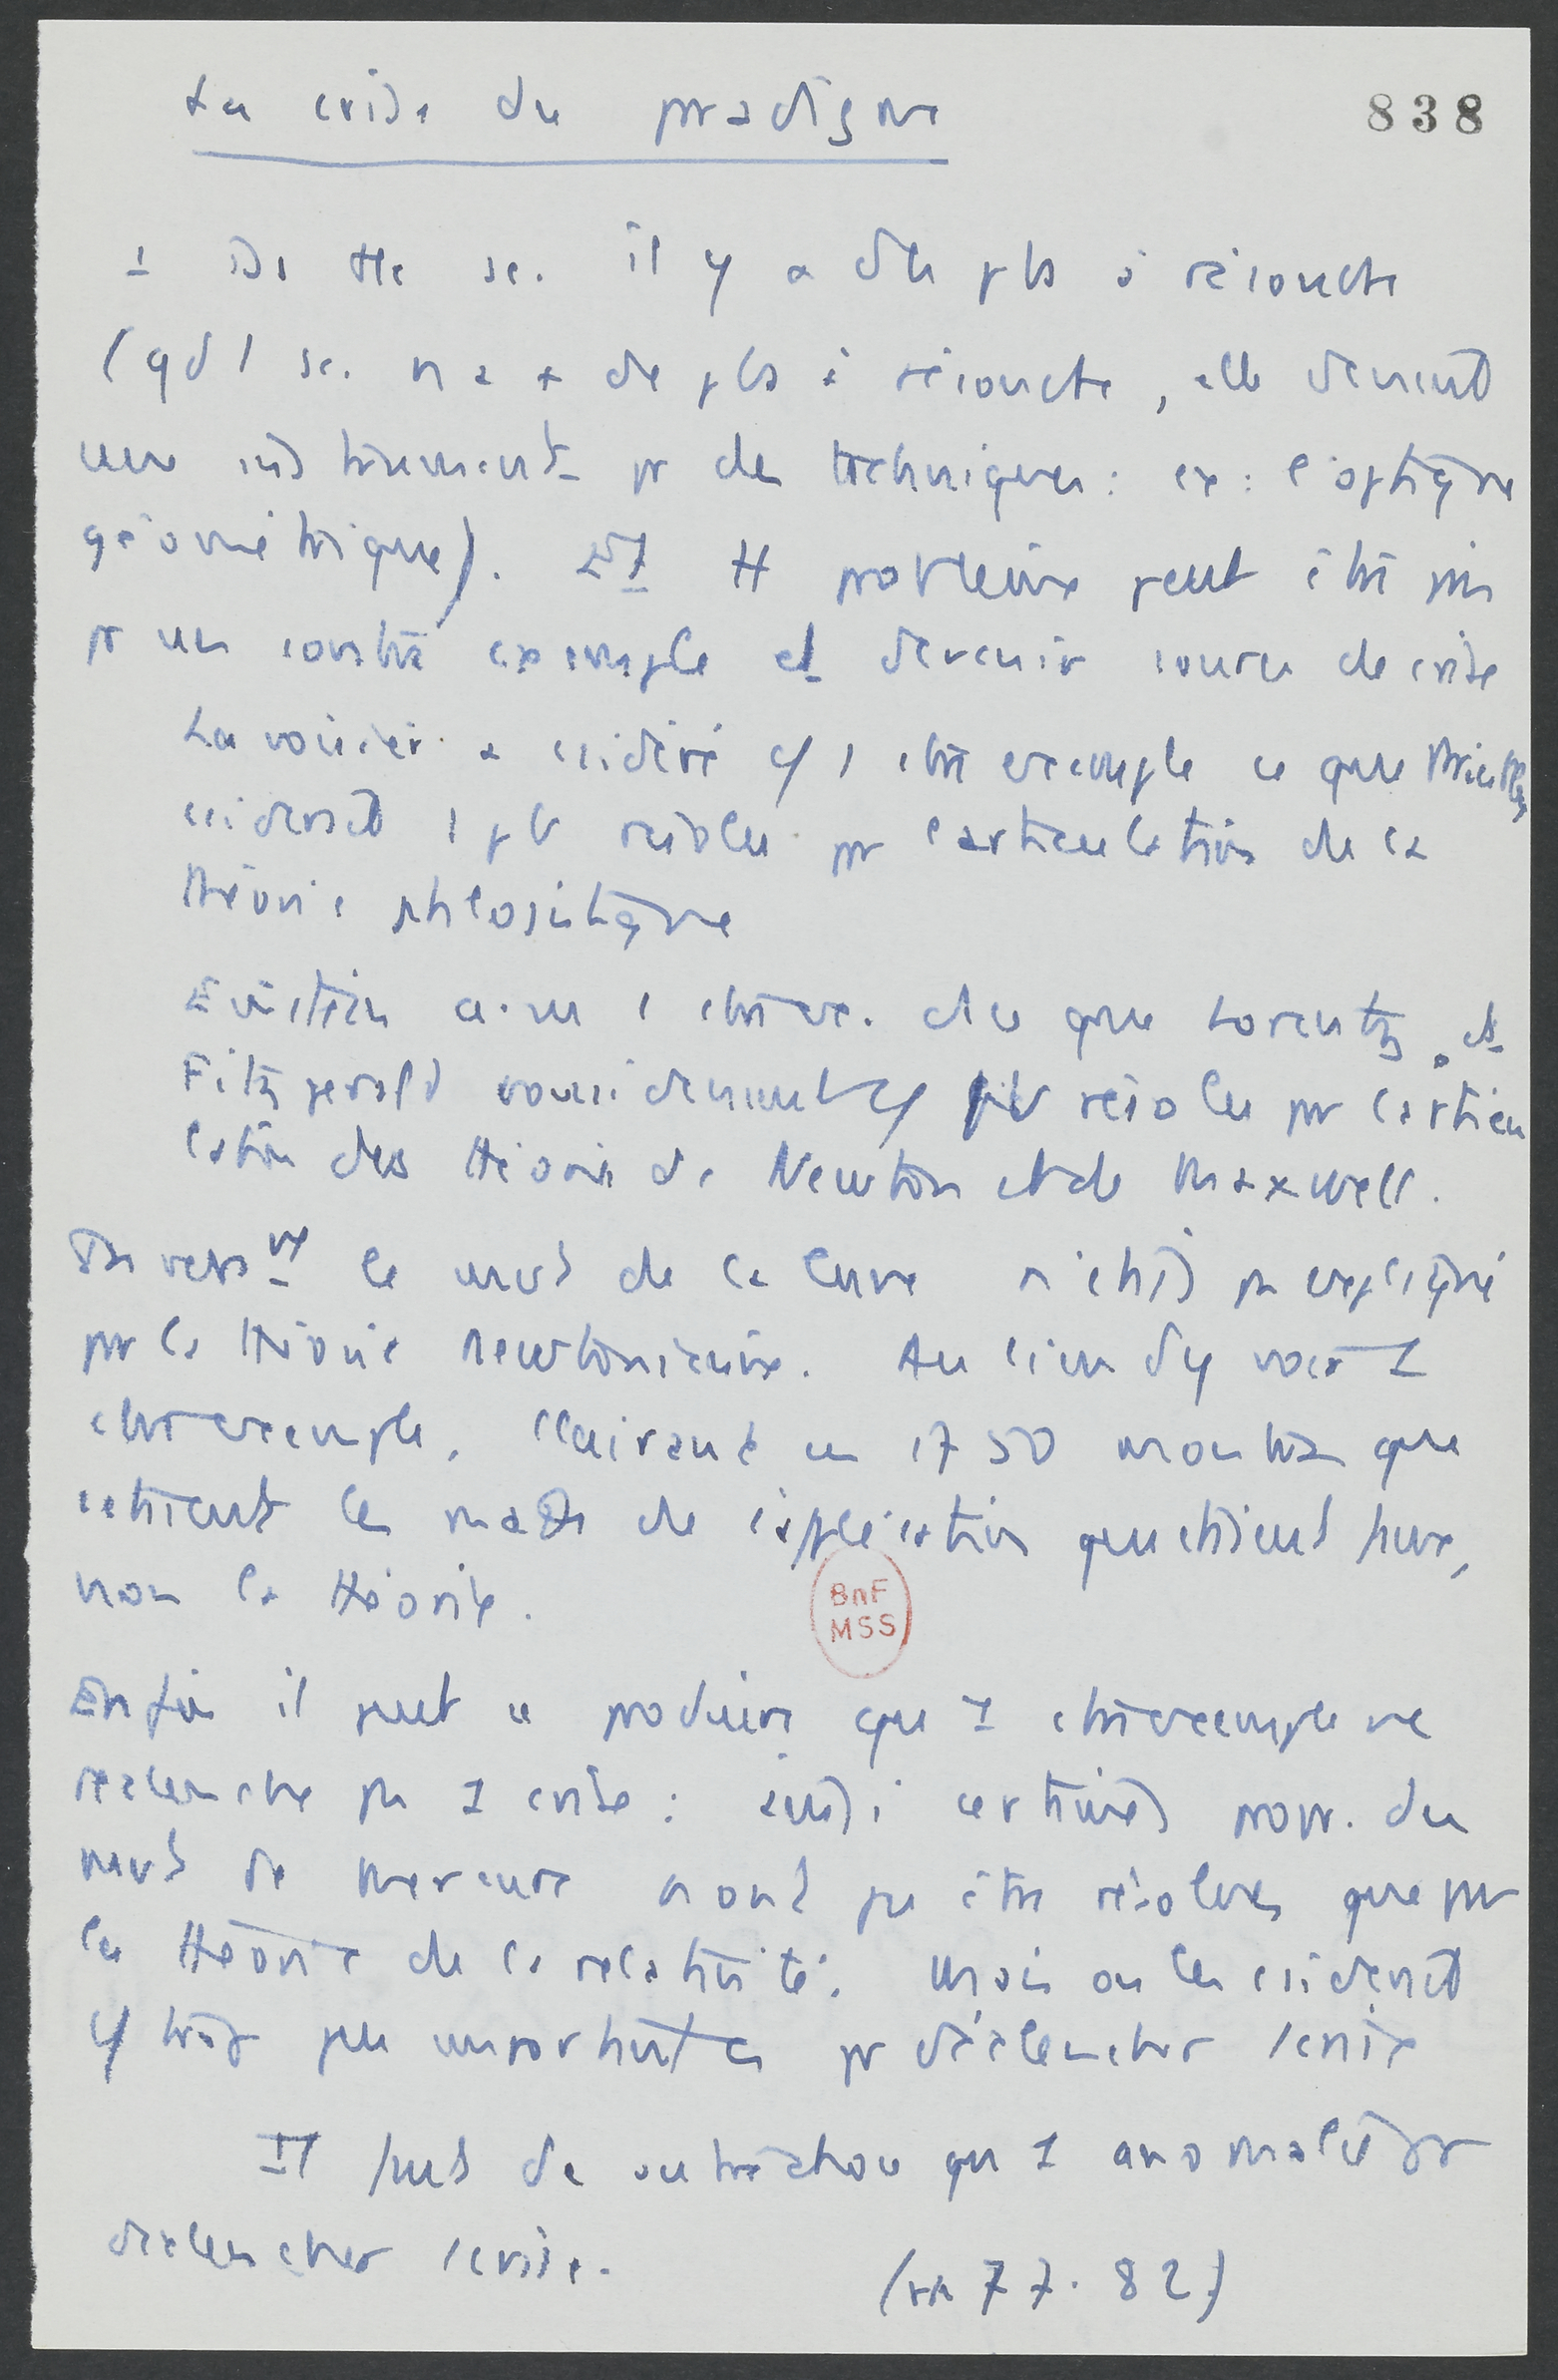 La crise du pradigme
838
1 Ds tte sc. il y a des pbs à résoudre
(qd 1 sc. n a + de pbs à résoudre, elle devient
une instrument pr des techniques : ex : l'optique
géométrique). Et tt problème peut être pris
pr un contre exemple et devenir source de crise
Lavoisier a csidéré c/ 1 ctre exemple ce que Priestley
csidérait 1 pb résolu pr l'articulation de la
théorie phlogistique
Einstein a vu 1 ctre ex. de ce que Lorentz et
Fitzgerald considéraient c/ pb résolu pr l'articu
lation des théorie de Newton et de Maxwell.
Invers^nt le mvt de la lune n'était pas expliqué
pr la théorie newtonienne. Au lieu d'y voir 1
ctre exemple, Clairaut en 1750 montra que
c'étaient les maths de l'application qui étaient fausses,
non la théorie.
BnF
MSS
Enfin il peut se produire que 1 ctrexemple ne
déclenche pas 1 crise : aussi certaines propr. du
mvt de Mercure n'ont pu être résolues que pr
la théorie de la relativité. Mais on les csidérait
c/ trop peu importantes pr déclencher 1 crise
Il faut de autre chose qu 1 anomalie pr
déclencher 1 crise.
(77. 82)